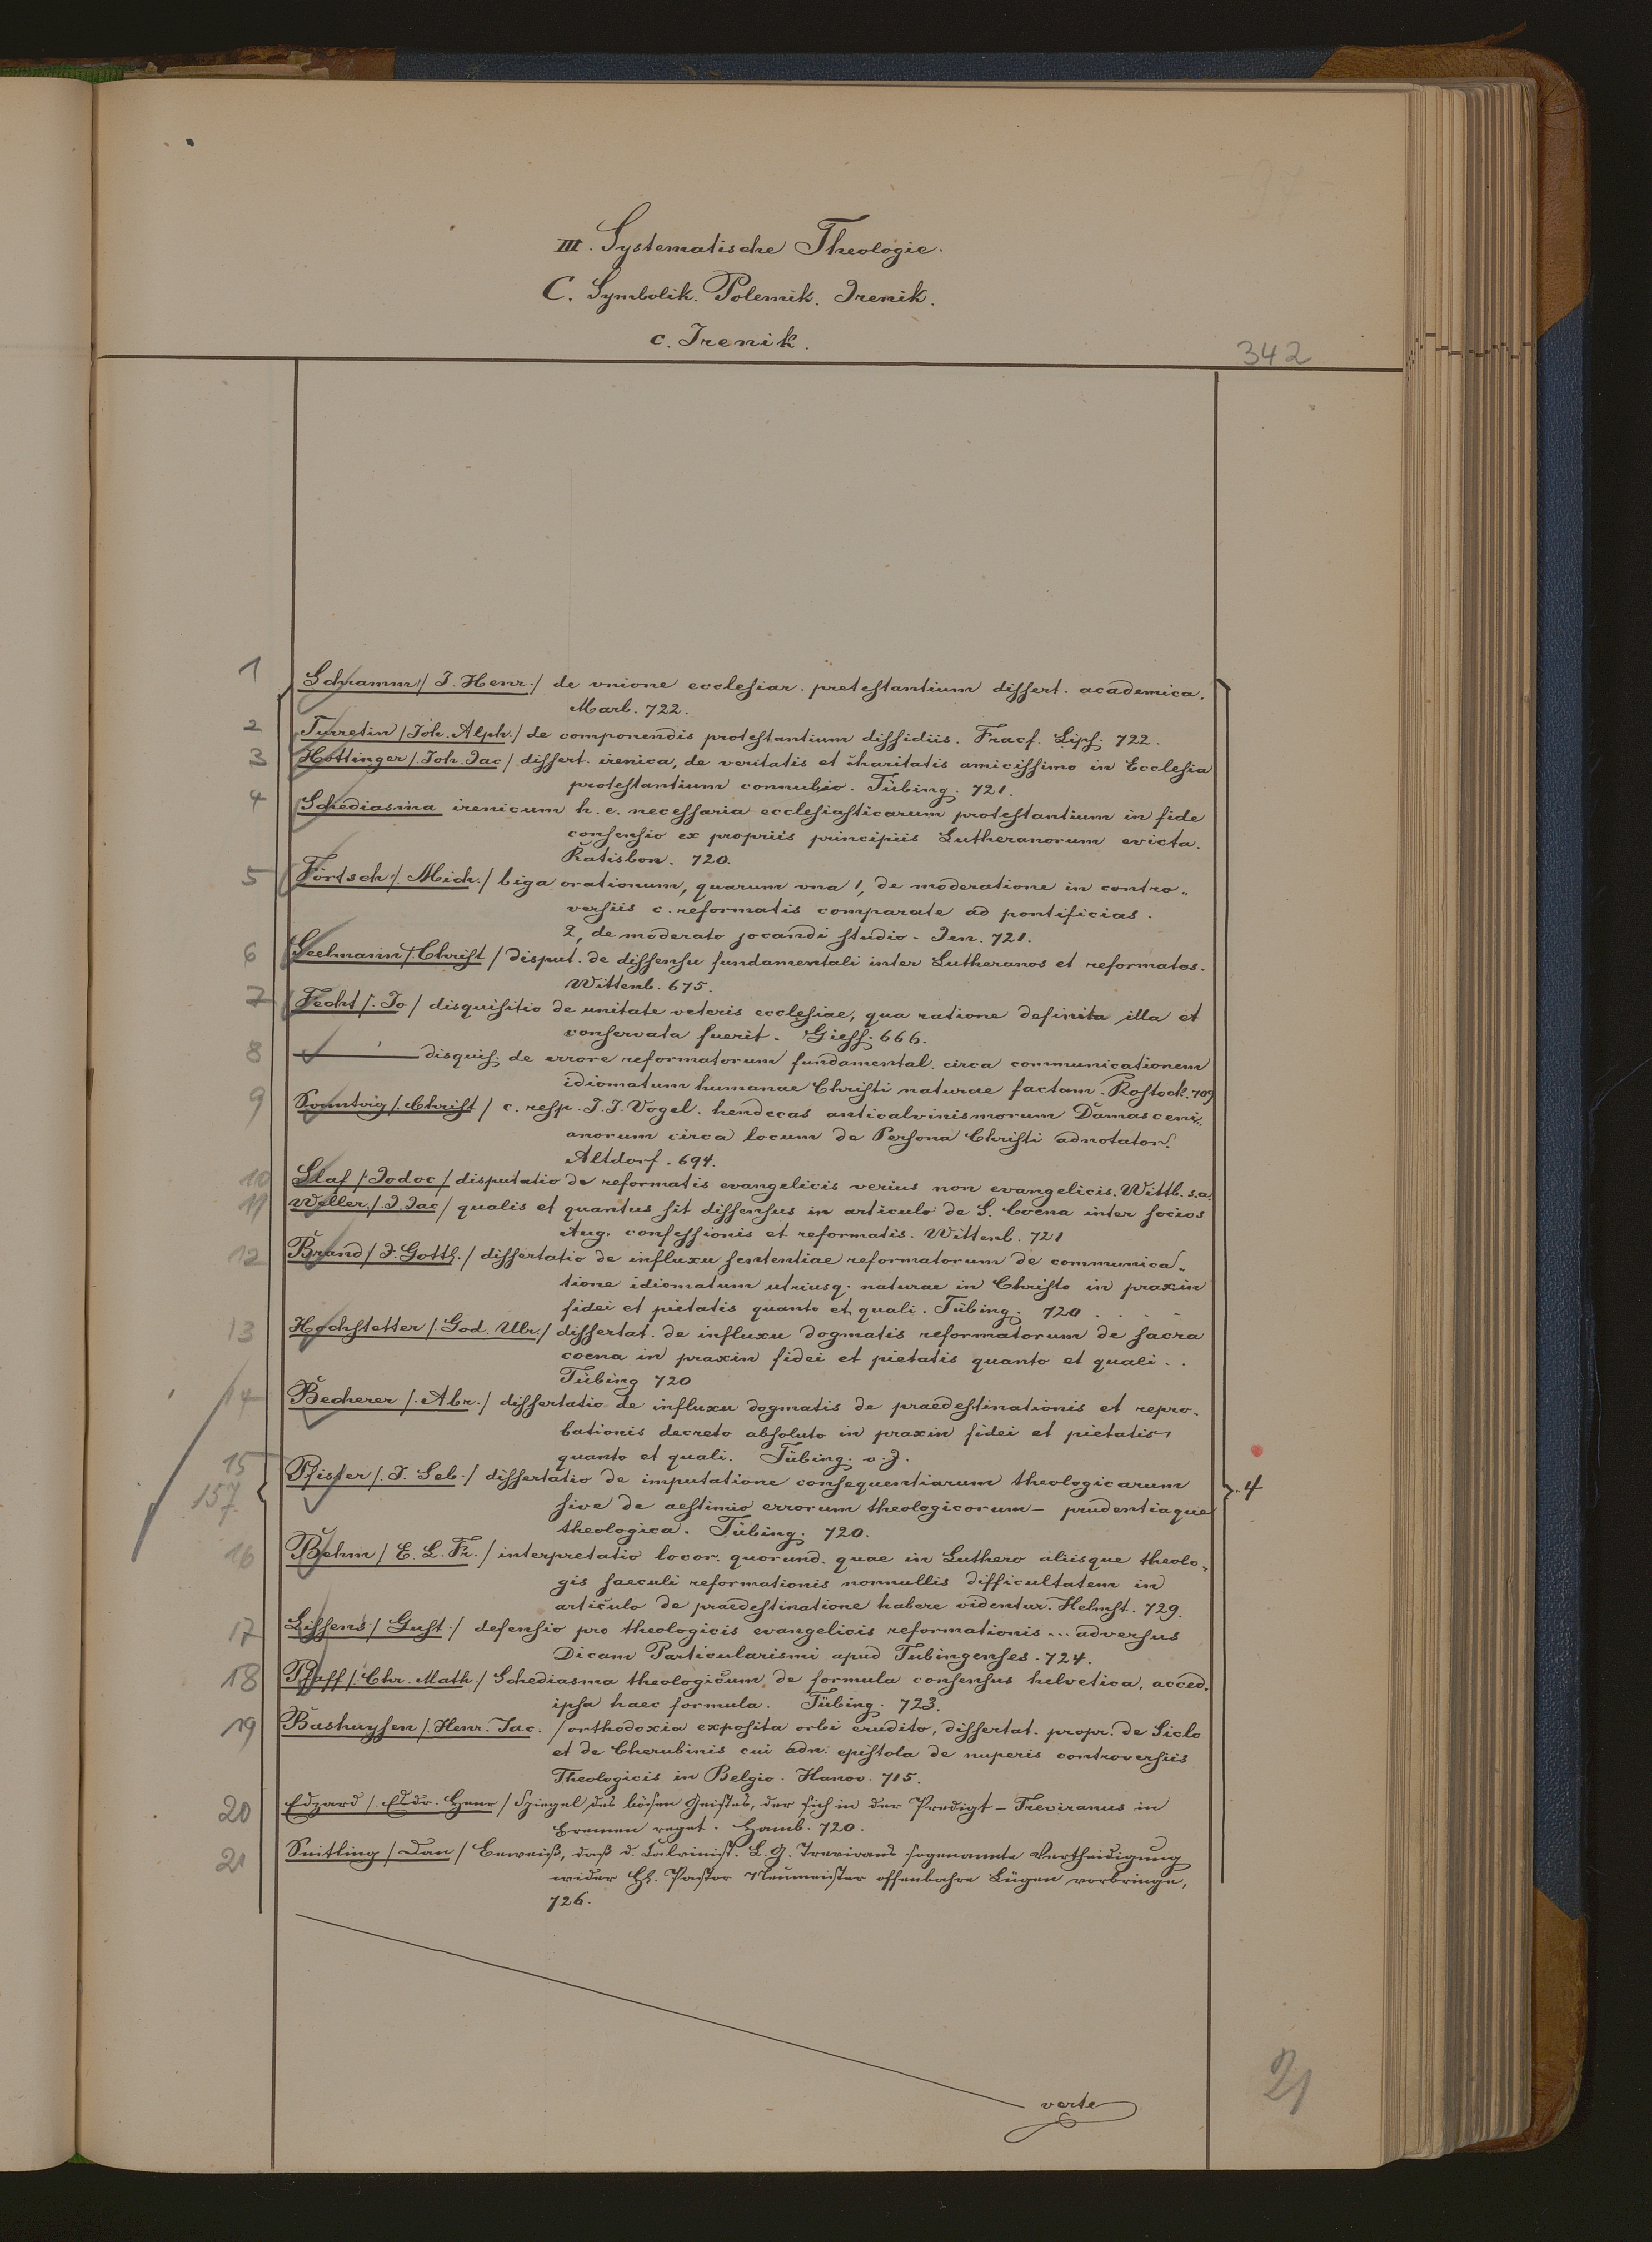 III. Systematische Theologie.
C. Symbolik. Polemik. Irenik.
c. Irenik.
342
1 Schramm /. J. Henr./ de vnione ecclesiar. pretestantium dissert. academica.
Marb. 722.
2 Turretin / Joh. Alph./ de componendis protestantium dissidiis. Fracf. Lips. 722.
3 Hottinger /. Joh. Jac / dissert. irenica, de veritatis et charitatis amicissimo in Ecclesia
protestantium connubio. Tübing. 721.
4 Schediasma irenicum h. e. necessaria ecclesiasticarum protestantium in fide
consensio ex propriis principiis Lutheranorum evicta.
Ratisbon. 720.
5 Förtsch /. Mich./ biga orationum, quarum vna 1, de moderatione in contro„
versiis c. reformatis comparate ad pontificias.
2, de moderato jocandi studio. Jen. 721.
6 Seelmann /. Christ / disput. de dissensu fundamentali inter Lutheranos et reformatos.
Wittenb. 675.
7 Fecht /. Jo / disquisitio de unitate veteris ecclesiae, qua ratione definita illa et
conservata fuerit. Giess. 666.
8 ——— disquis. de errore reformatorum fundamental. circa communicationem
idiomatum humanae Christi naturae factam. Rostock. 709
9 Sonntvig /. Christ / c. resp. J. J. Vogel. hendecas anticalvinismorum Damasceni„
anorum circa locum de Persona Christi adnotator.
Altdorf. 694.
10 Slaf /. Jodoc / disputatio de reformatis evangelicis verius non evangelicis. Wittb. s.a.
11 Weller /. J. Jac / qualis et quantus sit dissensus in articulo de S. Coena inter socios
Aug. confessionis et reformatis. Wittenb. 721
12 Brand / J. Gottl. / dissertatio de influxu sententiae reformatorum de communica„
tione idiomatum utriusq. naturae in Christo in praxin
fidei et pietatis quanto et quali. Tübing. 720 . . .
13 Hochstetter /. God. Ulr./ dissertat. de influxu dogmatis reformatorum de sacra
coena in praxin fidei et pietatis quanto et quali . .
Tübing 720
14 Becherer /. Abr./ dissertatio de influxu dogmatis de praedestinationis et repro„
bationis decreto absoluto in praxin fidei et pietatis
quanto et quali. Tübing. o. J.
15 Pfister /. J. Seb./ dissertatio de imputatione consequentiarum theologicarum
157 4
sive de aestimio errorum theologicorum – prudentiaque
theologica. Tübing. 720.
16 Behm / E. L. Fr. / interpretatio locor. quorund. quae in Luthero aliisque theolo„
gis saeculi reformationis nonnullis difficultatem in
articulo de praedestinatione habere videntur. Helmst. 729.
17 Lissens / Gust./ defensio pro theologicis evangelicis reformationis ... adversus
Dicam Particularismi apud Tubingenses. 724.
18 Pfaff /. Chr. Math./ Schediasma theologicum de formula consensus helvetica, acced.
ipsa haec formula. Tübing. 723.
19 Bashuysen /. Henr. Jac. / orthodoxia exposita orbi erudito, dissertat. propr. de Siclo
et de Cherubinis cui adn. epistola de nuperis controversiis
Theologicis in Belgio. Hanov. 715.
20 Edzard /. Esdr. Henr / Spiegel des bösen Geistes, der sich in der Predigt – Treviranus in
Bremen reget. Hamb. 720.
21 Snitling / Dan / Beweiß, daß d. Calvinist. L. G. Treviran's sogenannte Vertheidigung
wider Hl. Pastor Neumeister offenbahre Lügen vorbringe,
726.
verte
21